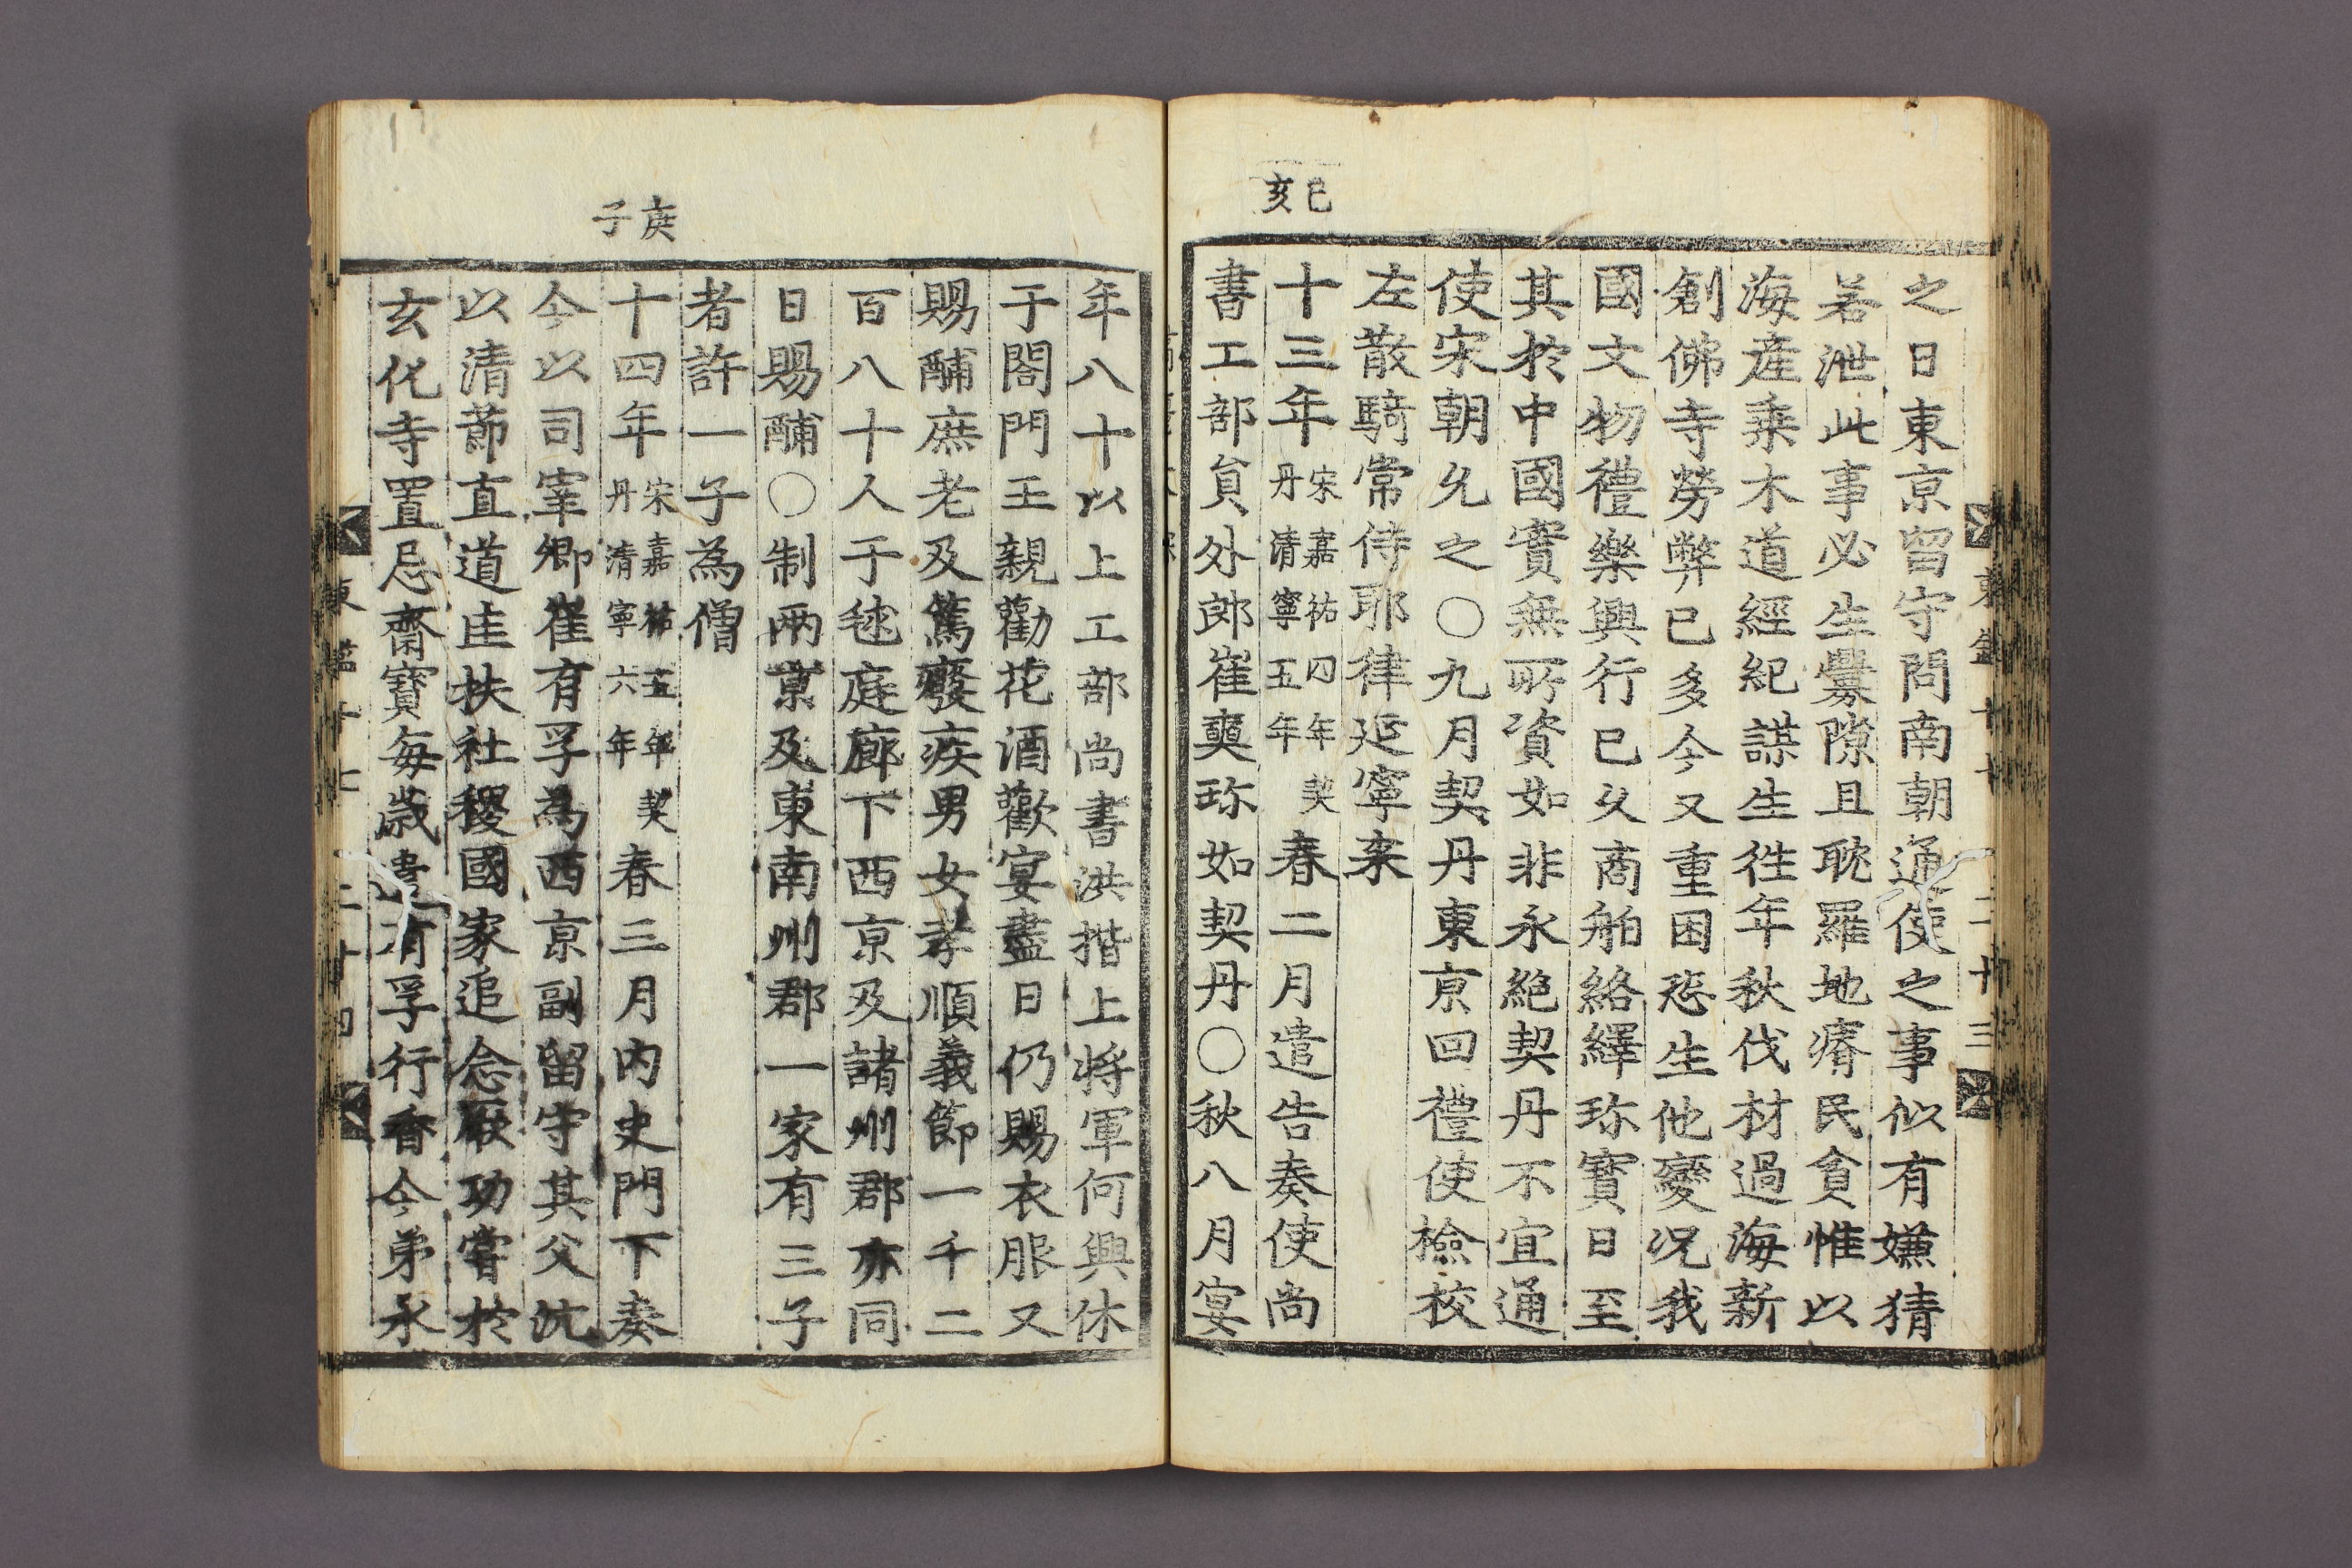 己亥
之日東京留守問南朝通使之事似有嫌猜
若泄此事必生釁隙且耽羅地瘠民貧惟以
海産乗木道經紀謀生徃年秋伐材過海新
創佛寺勞弊已多今又重困恐生他變况我
國文物禮樂興行已久商舶絡繹珎寶日至
其於中國實無所資如非永絶契丹不宜通
使宋朝允之○九月契丹東京回禮使檢校
左散騎常侍耶律延寧来
十三年宋嘉祐四年契丹清寧五年春二月遣告奏使尚
書工部貟外郎崔奭珎如契丹○秋八月宴
東鑑十七 二十三
庚子
年八十以上工部尚書洪揩上將軍何興休
于閤門王親勸花酒歡宴盡日仍賜衣服又
賜酺庶老及篤廢疾男女孝順義節一千二
百八十人于毬庭廊下西京及諸州郡亦同
日賜酺○制兩京及東南州郡一家有三子
者許一子為僧
十四年宋嘉祐五年契丹清寧六年春三月内史門下奏
今以司宰卿崔有孚為西京副留守其父沆
以清節直道匡扶社稷國家追念厥功嘗於
玄化寺置忌齋寶每歲遣有孚行香今弟永
東鑑十七 二十四